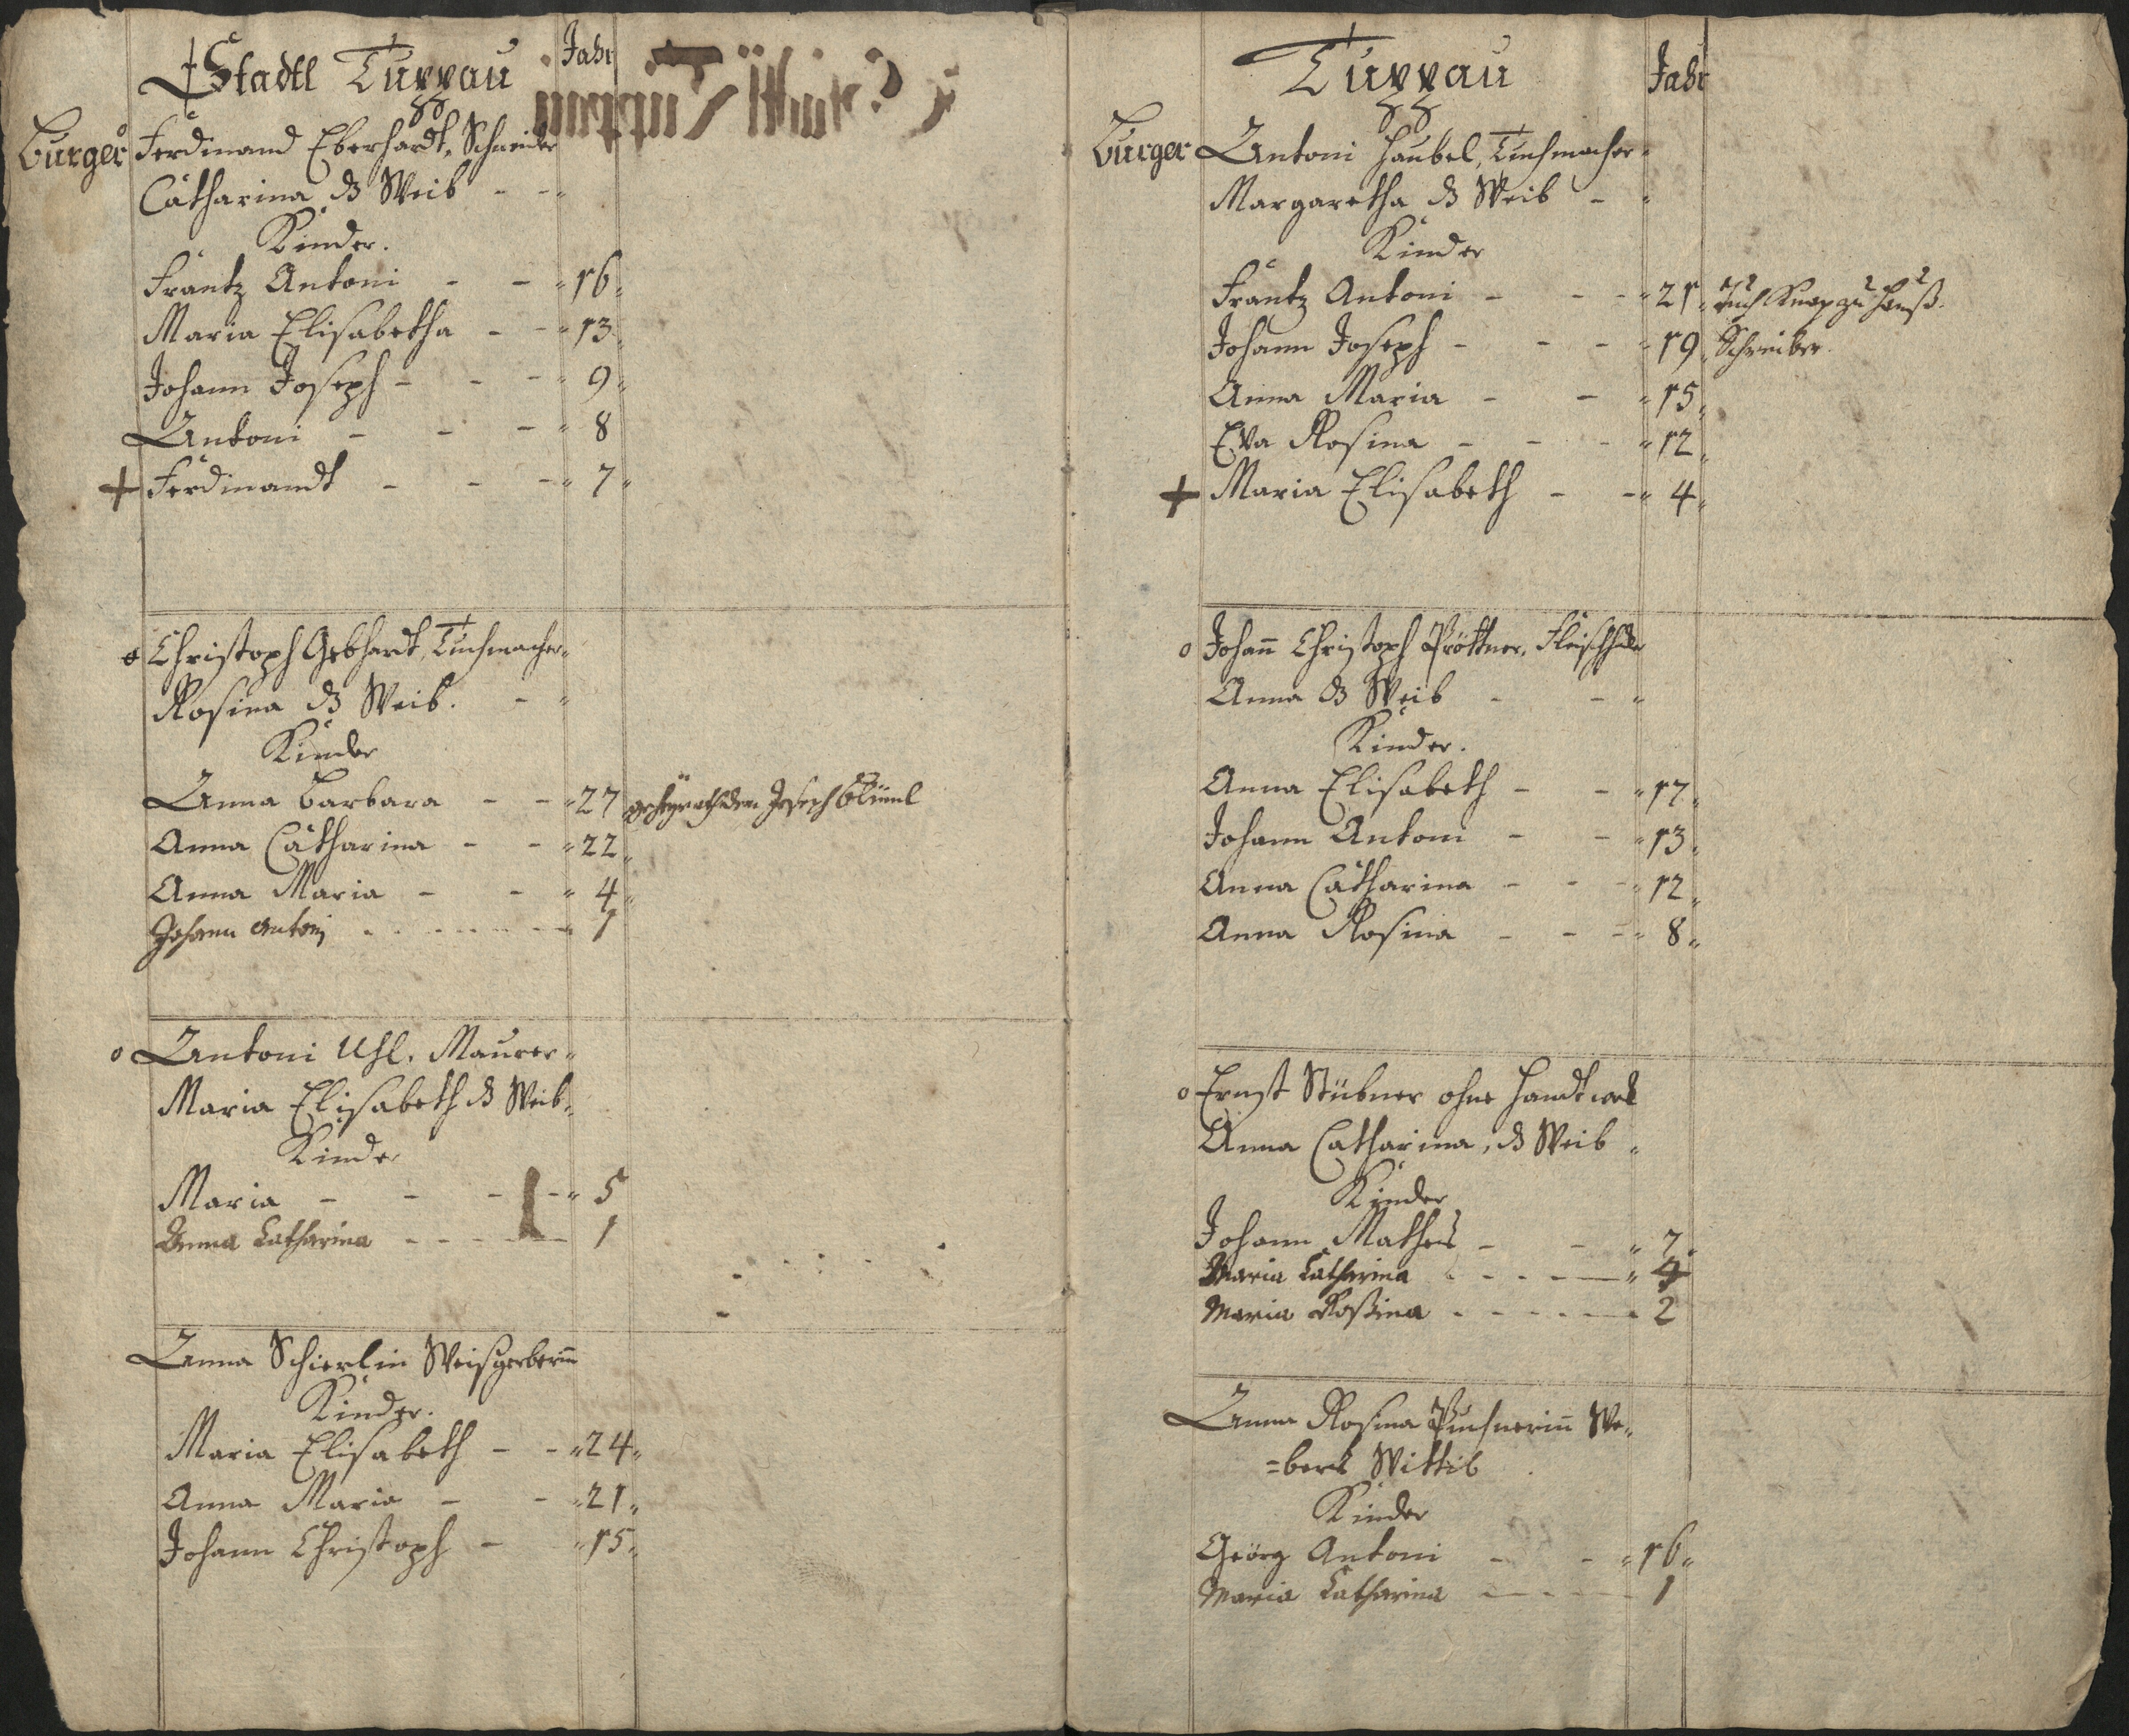 Stadtl Tuppau
Jahr
Burger
Ferdinand Eberhardt, Schneider
Catharina ds Weib
Kinder.
Frantz Antoni - - 16.
Maria Elisabetha - - 13.
Johann Joseph - - - 9.
Antoni - - - 8
+ Ferdinandt - - - 7.
o Christoph Gebhardt, Tuchmacher
Rosina ds Weib. -
Kinder
Anna Barbara - - 27 Joseph
Anna Catharina - - 22.
Anna Maria - - 4.
Johann Antonj - - - 1
o Antoni Uhl. Maurer
Maria Elisabeth ds Weib.
Kinder
Maria - - - 5
Anna Catharina - - - 1
Anna Schierlin Weißgerberin
Kinder.
Maria Elisabeth - - 24.
Anna Maria - - 21.
Johann Christoph - 15.
Tuppau
Jahr
Burger
Antoni Haubel, Tuchmacher
Margaretha ds Weib -
Kinder
Frantz Antoni - - - 21. Tuch Knap zu Hauß.
Johann Joseph - - - 19. Schreiber.
Anna Maria - - 15.
Eva Rosina - - - 12.
+ Maria Elisabeth - - 4.
o Johann Christoph Pröttner, Fleischhaker
Anna ds Weib - -
Kinder.
Anna Elisabeth - - 17.
Johann Antoni - - 13.
Anna Catharina - - - 12.
Anna Rosina - - - 8.
o Ernst Stübner ohne Handtwerk
Anna Catharina, ds Weib
Kinder
Johann Mathes - - 7.
Maria Catharina - - - 4
Maria Rosina - - - 2
Anna Rosina Puchnerin We-
=bers Wittib
Kinder
Geörg Antoni - - 16.
Maria Catharina - - - 1